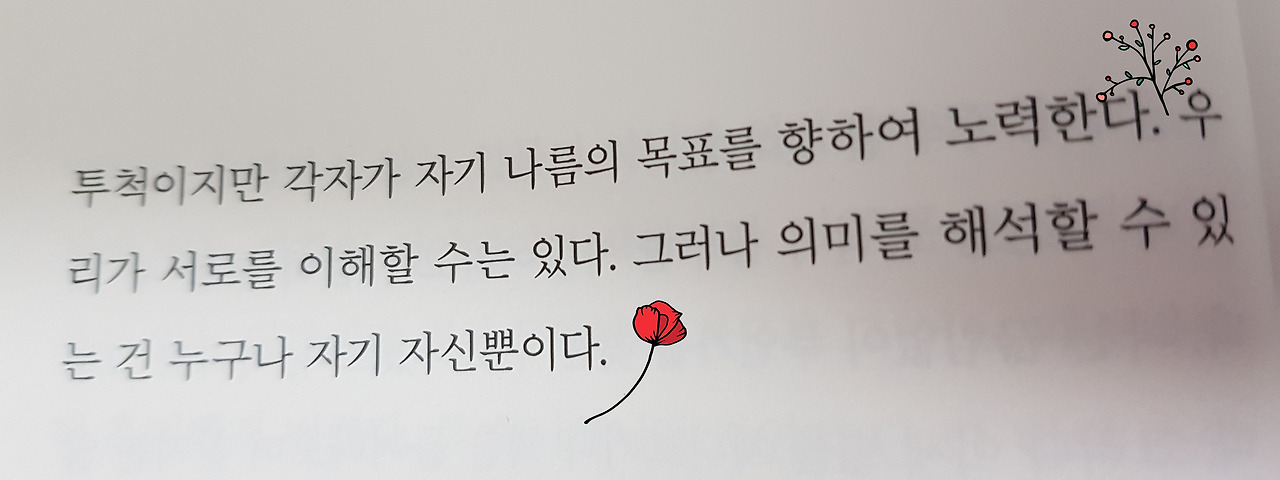 투척이지만 각자가 자기 나름의 목표를 향하여 노력한다. 우
리가 서로를 이해할 수는 있다. 그러나 의미를 해석할 수 있
는 건 누구나 자기 자신뿐이다.